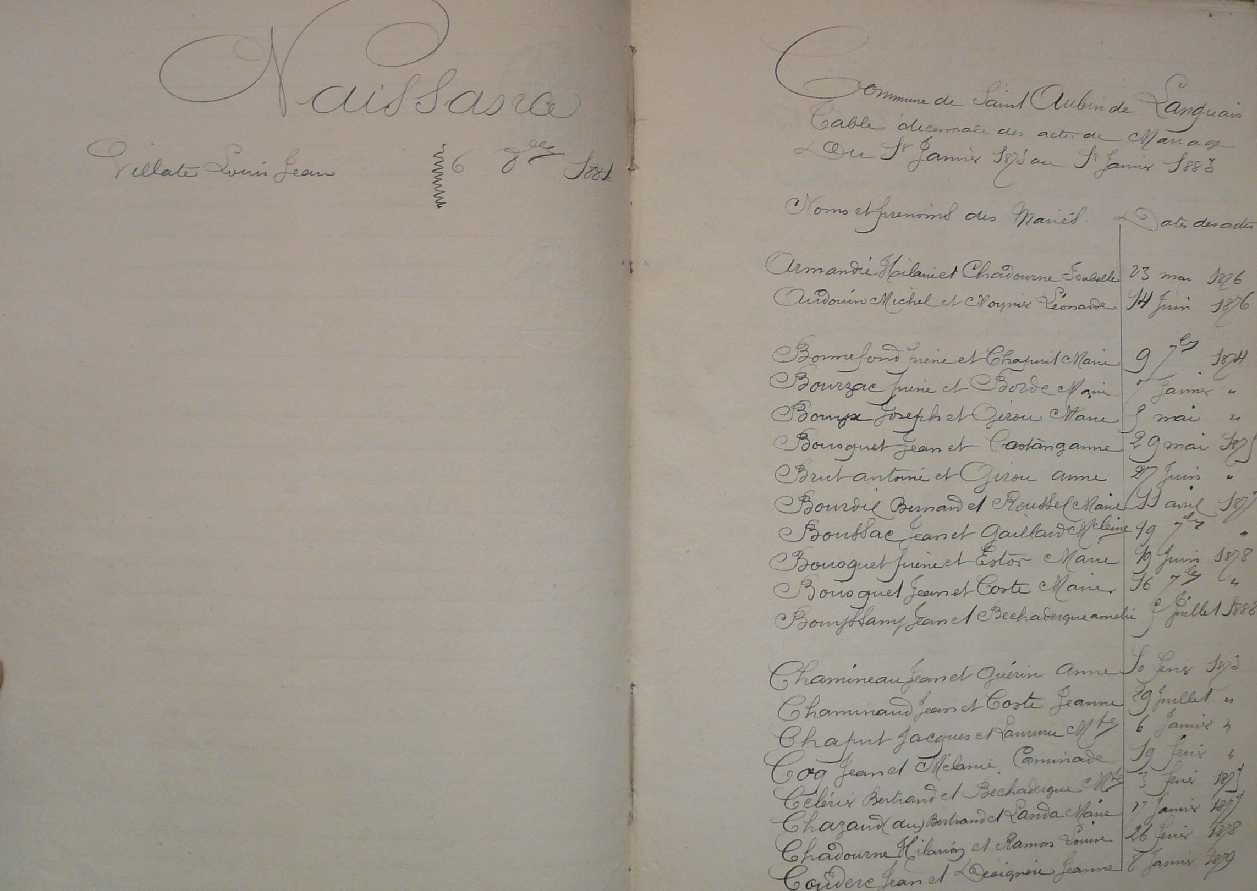 Naissance
Villate Louis Jean 6 7bre 1882
Commune de Saint Aubin de Lanquais
Table décennale des actes de Mariage
Du 1r Janvier 1873 au 1r Janvier 1883
Noms et prenoms des Mariés Dates des actes
Armandié Hilaire et Chadourne Isabelle 23 mai 1876
Audouin Michel et Léonarde 14 Juin 1876
Bonnefond et Marie 9 7bre 1874
Bourzac et Borde Marie Janvier "
Joseph et Girou Marie mai "
Bousquet Jean et Castang anne 29 mai 1875
Brut antoine et Girou anne 27 Juin "
Bourdil Bernard et Roussel Marie 11 avril 1877
Boussac Jean et Gaillard 19 7bre "
Bousquet et Estor Marie 19 Juin 1878
Bousquet Jean et Coste Marie 16 7bre "
Jean et Bechadergue amelie Juillet
Chamineau Jean et Guérin Anne 10 1873
Chaminaud Jean et Coste Jeanne 29 Juillet "
Jacques et Mte 6 Janvier "
Coq Jean et Mélanie Caminade 19 "
Bertrand et Bechadergue Mte 1875
Chazaud (au) Bertrand et Landa Marie Janvier 1877
Chadourne et Ramon Louise 26 1878
Couderc Jean et Jeanne 8 Janvier 1879